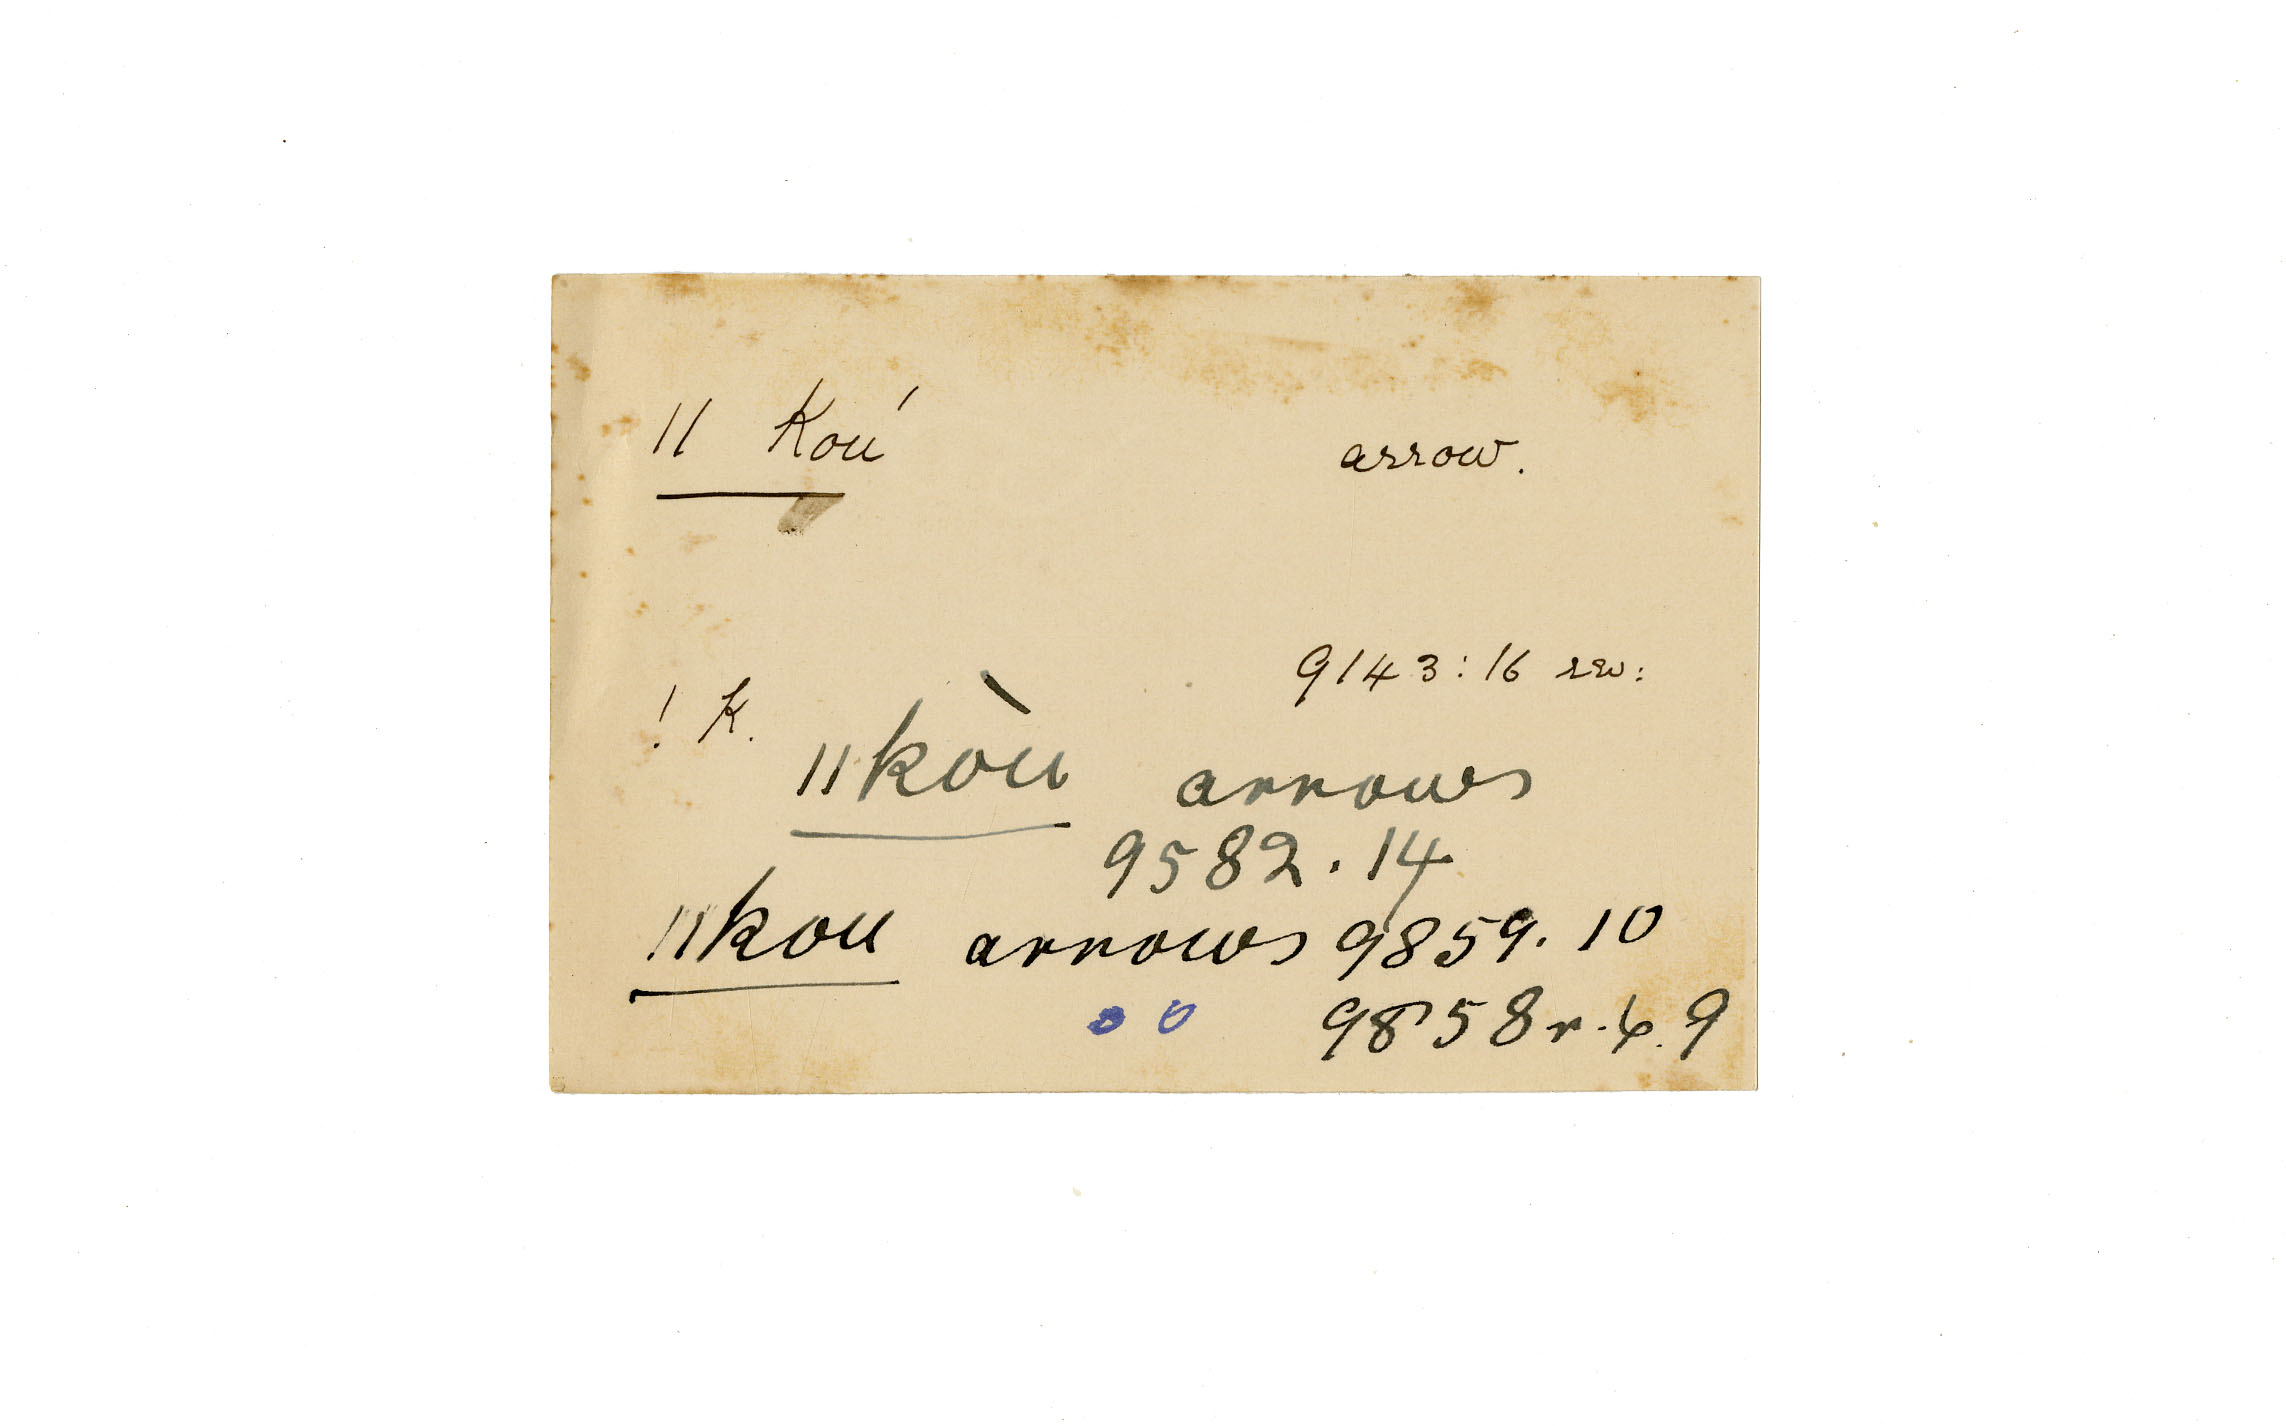 ǁ Kou´ arrow.
9143:16 rev:
! K.
ǁkòu arrows
9582.14
ǁkou arrows 9859.10
9858r.6.9